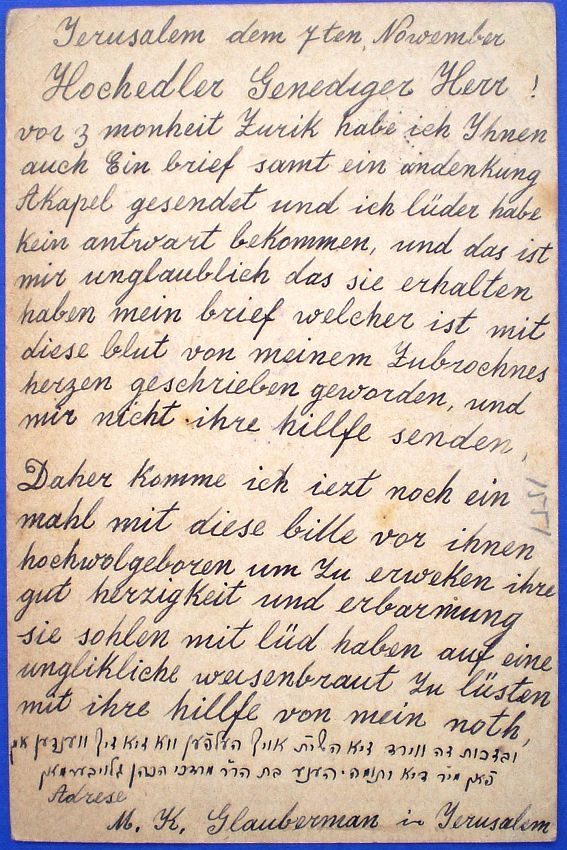 Jerusalem dem 7ten, November
Hochedler Genediger Herr !
vor 3 monheit Zurik habe ich Ihnen
auch Ein brief samt ein andenkung
AKapel gesendet und ich lüder habe
kein antwart bekommen, und das ist
mir unglaublich das sie erhalten
haben mein brief welcher ist mit
diese blut von meinem Zubrochnes
herzen geschrieben geworden, und
mir nicht ihre hillfe senden,
Daher komme ich iezt noch ein
mahl mit diese bille vor ihnen
hochwolgeboren um Zu erweken ihre
gut herzigkeit und erbarmung
sie sohlen mit lüd haben auf eine
unglikliche weisenbraut Zu lüsten
mit ihre hillfe von mein noth,
ובזכות דה ווירד דיא השי״ת אויף העלפֿען ווא דיא דיך ווענדען
מיר דיא יתומה הענע בת הר״ר מרדכי הכהן גלויבערמאן
Adrese
M. K. Glauberman in Jerusalem